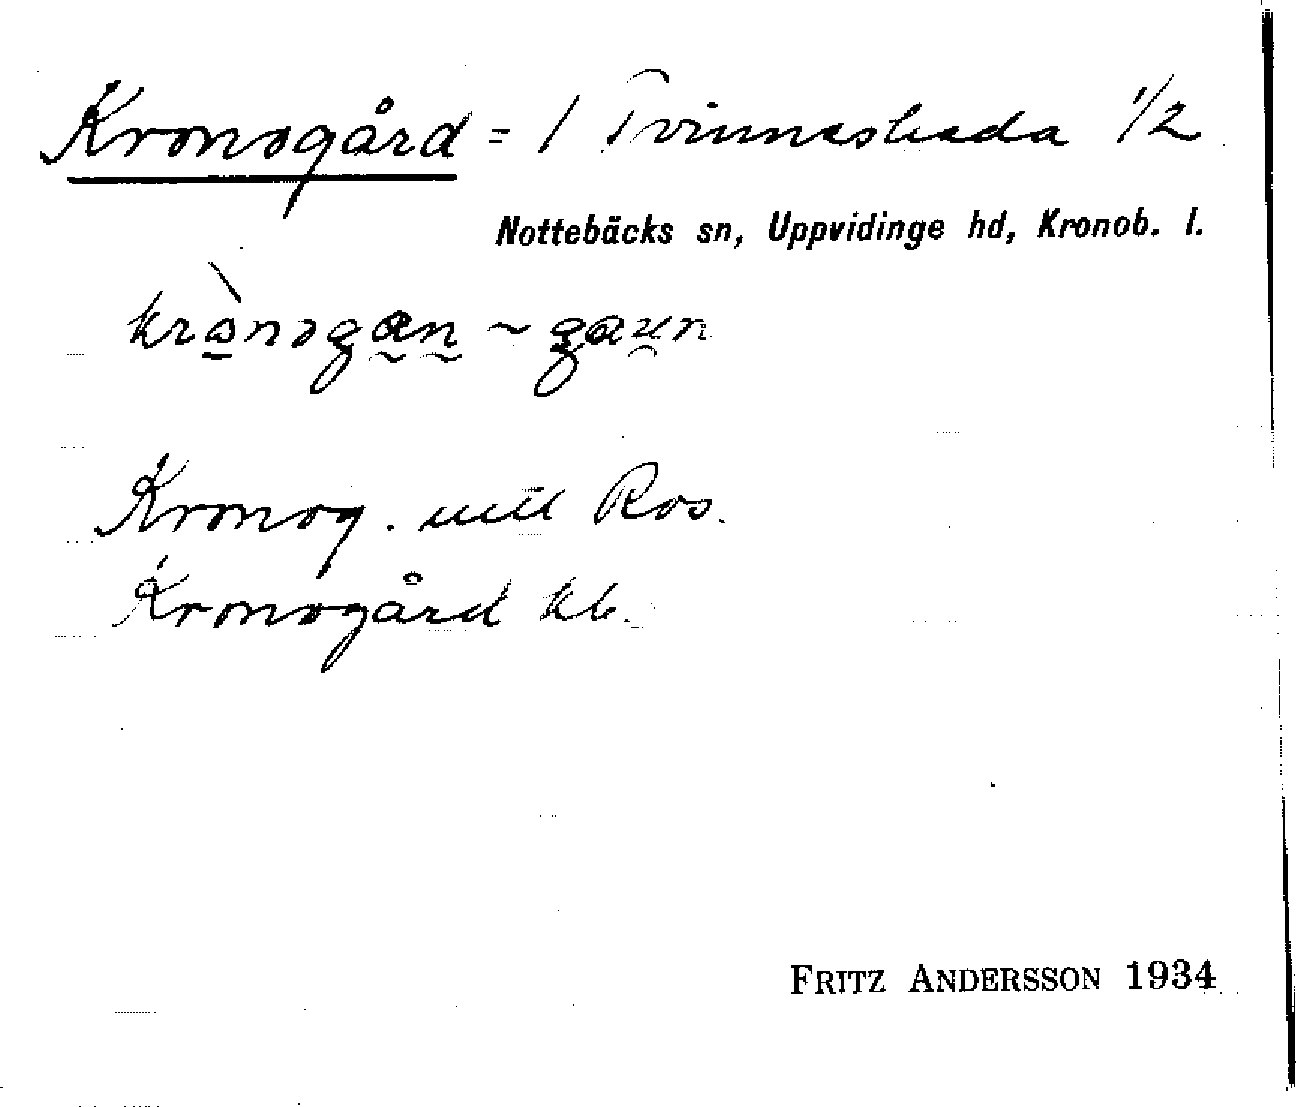 Kronogård = 1 Tvinnesheda 1/2
Nottebäcks sn, Uppvidinge hd, Kronob. l.
krònogan ~ gaun
Kronog. uttl Ros.
Kronogård kb.
FRITZ ANDERSSON 1934